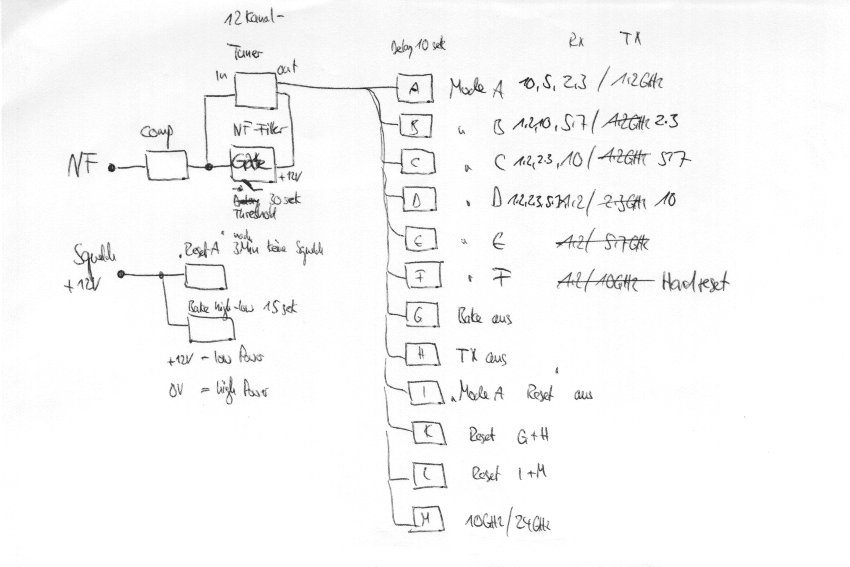 12 Kanal-
Tuner
In
out
Comp
NF-Filter
NF
Gate
+12V
30 sek
Threshold
Squelch
+12V
"Reset A" nach
3 Min keine Squelch
Bake high-low 15 sek
+12V - low Power
0V = high Power
Delay 10 sek
RX TX
A Mode A 10, 5, 2,3 / 1.2GHz
B " B 1.2,10, 5.7 / 1.2GHz 2.3
C " C 1.2, 2.3, 10 / 1.2GHz 5.7
D " D 1.2,2.3,5.7 1.2 / 2.3GHz 10
E " E 1.2 / 5.7GHz
F " F 1.2 / 10GHz Hardreset
G Bake aus
H TX aus
I "Mode A Reset" aus
K Reset G+H
L Reset I+M
M 10GHz/24GHz